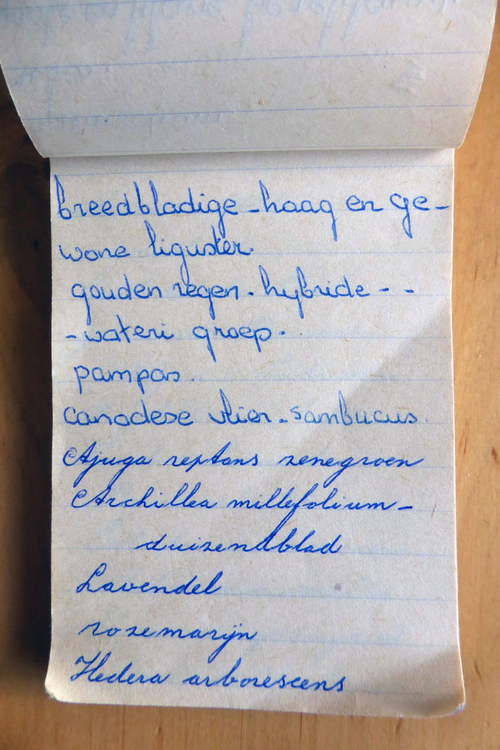 breedbladige - haag en ge-
wone liguster.
gouden regen - hybride - -
- wateri groep.
pampas.
canadese vlier - sambucus.
Ajuga reptans zenegroen
Archillea millefolium -
duizendblad
Lavendel
rozemarijn
Hedera arborescens